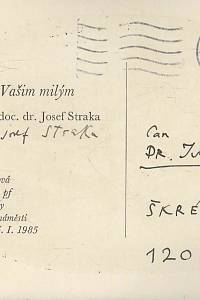 Vašim milým
doc. dr. Josef Straka
Josef Straka
vá
pf
y
náměstí
. I. 1985
Can
DR. I
ŠKRÉ
120